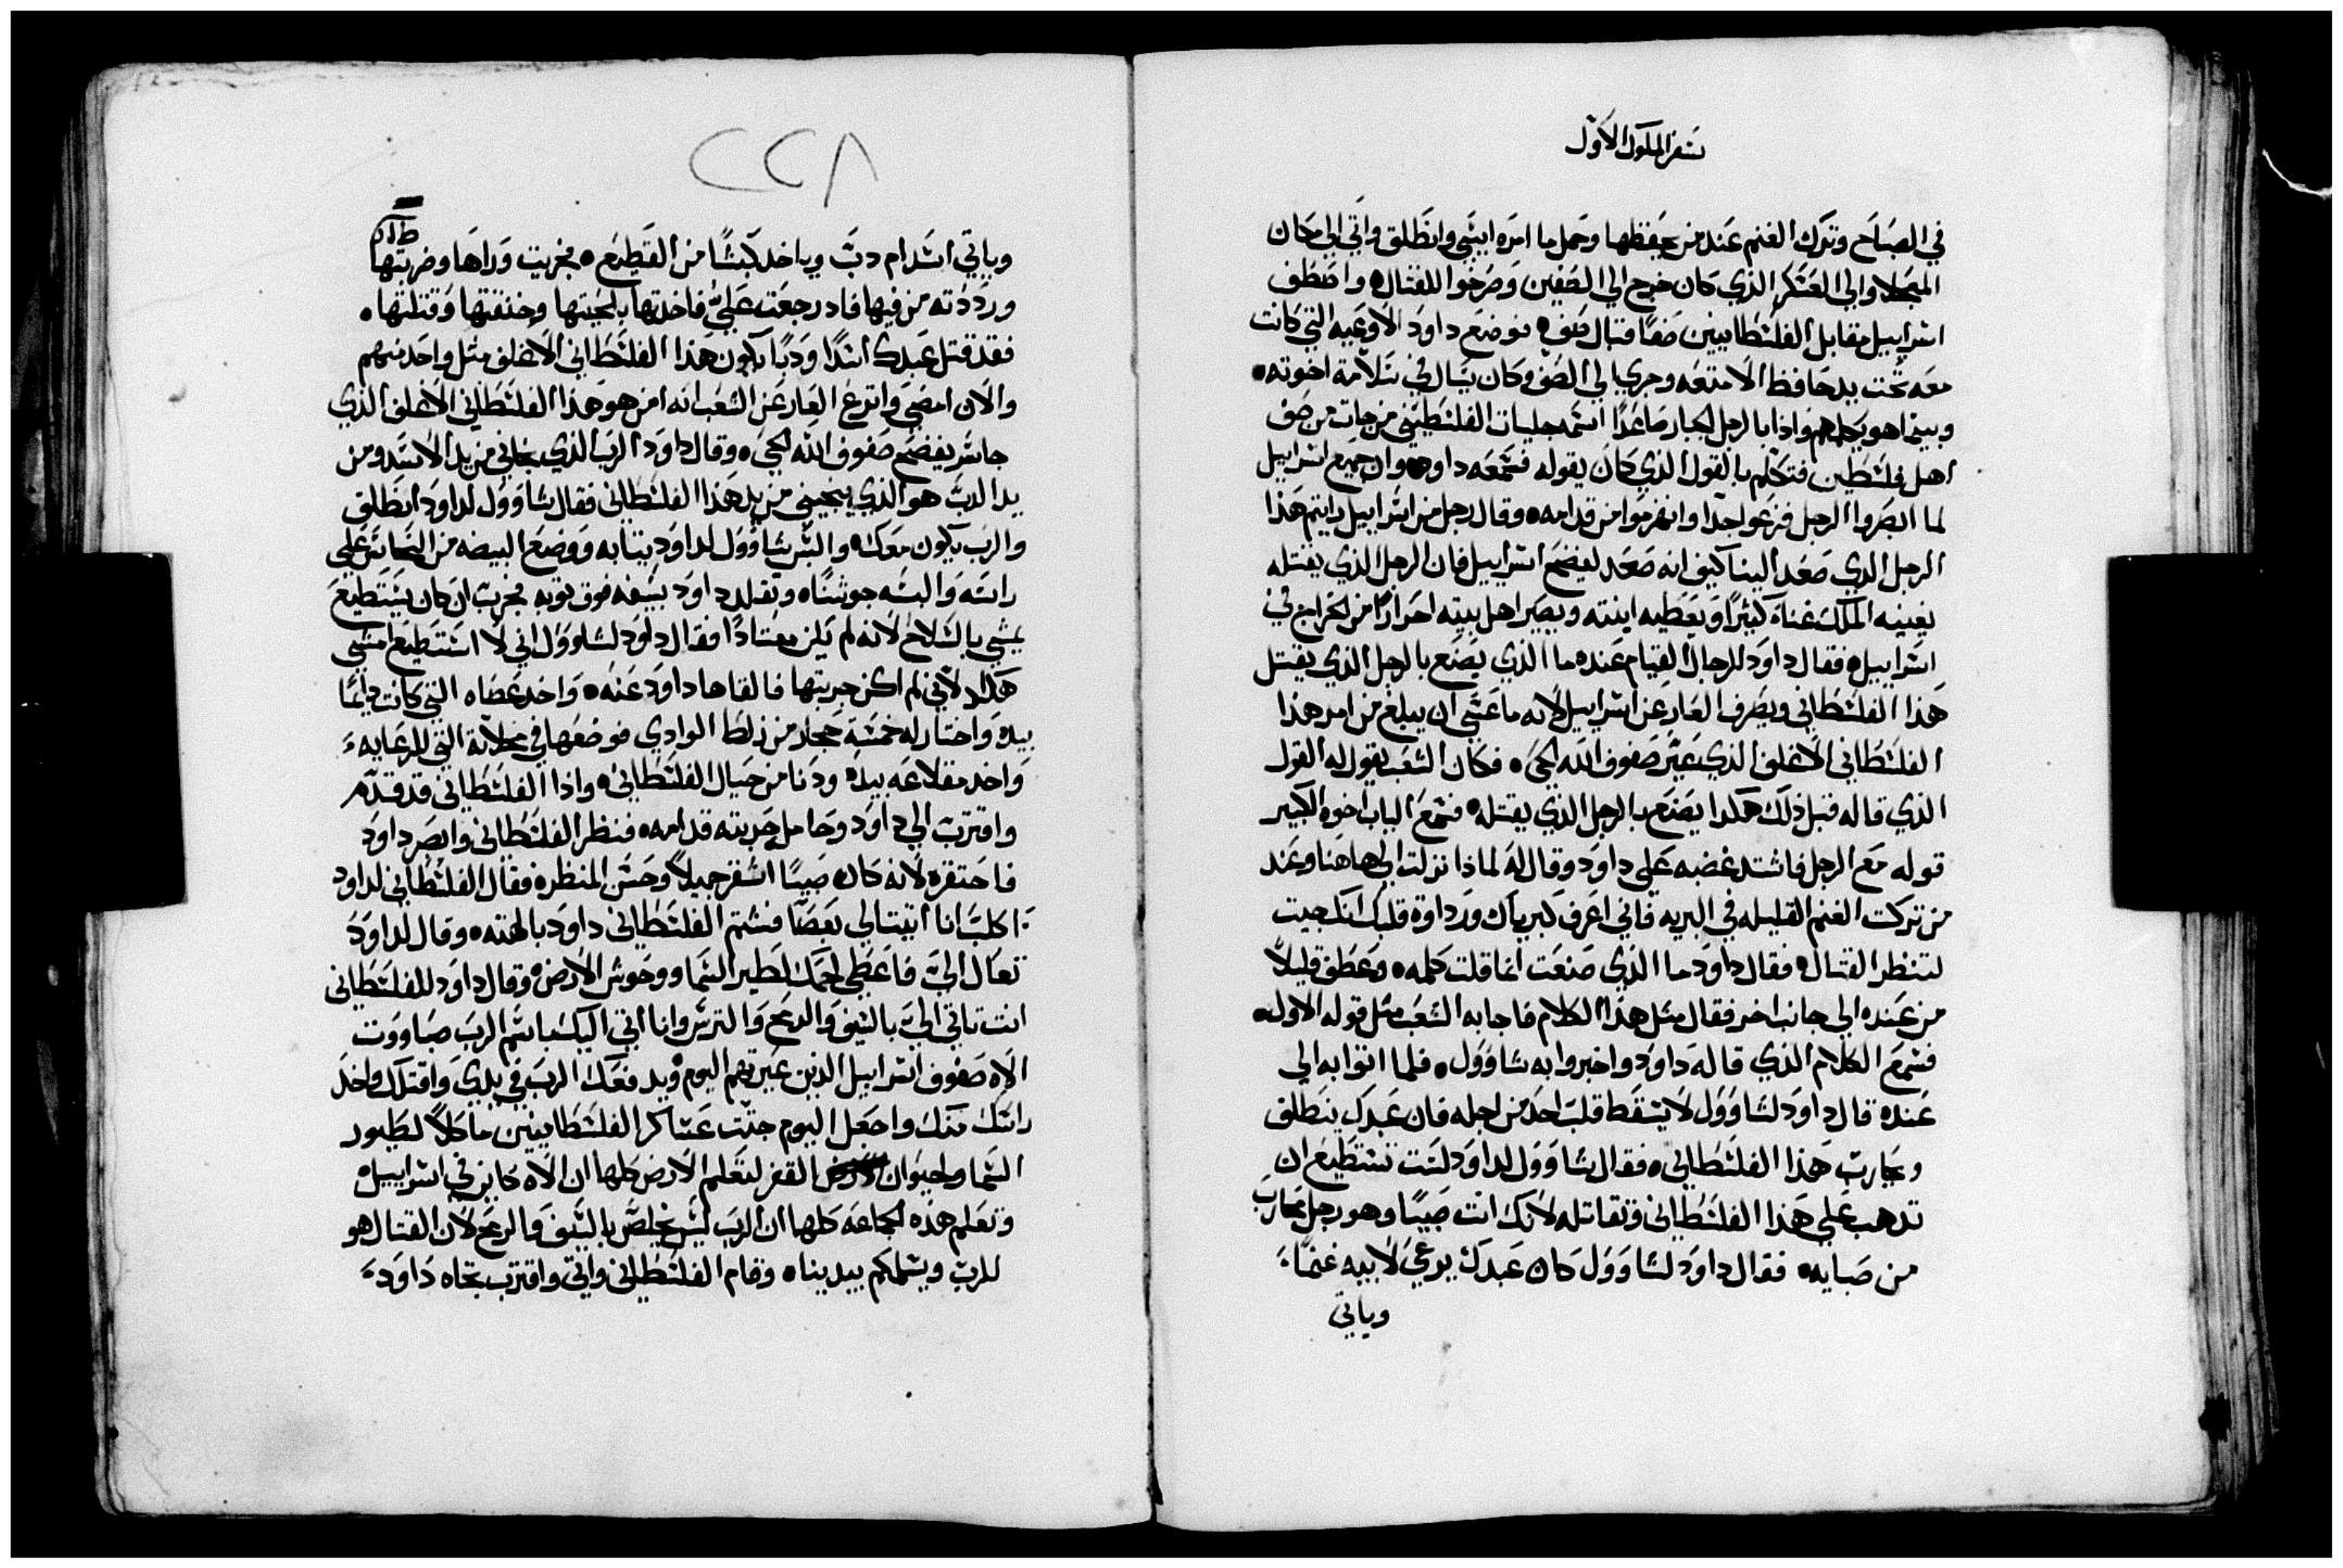 سفر الملوك الاول
في الصباح وترك الغنم عند من يحفظها وحمل ما امره ايسي وانطلق واتي الي مكان
المجحلا والي العسكر الذي كان خرج الي الصفين وصرخوا للقتال واصطف
اسراييل مقابل الفلسطانيين صفا قبال صف فوضع داود الاوعيه التي كانت
معه تحت يد حافظ الامتعه وجري الي الصف وكان يسال في سلامة اخوته
وبينما هو يكلمهم واذا بالرجل الجبار صاعدا اسمه جليات الفلسطيني من جات من صف
اهل فلسطين فتكلم بالقول الذي كان يقوله فسمعه داود وان جميع اسراييل
لما ابصروا الرجل فزعوا جدا وانهزموا من قدامه وقال رجل من اسراييل رايتم هذا
الرجل الذي صعد الينا كيف انه صعد ليفضح اسراييل فان الرجل الذي يقتله
يغنيه الملك غناة كثيرا ويعطيه ابنته ويصير اهل بيته احرارا من الخراج في
اسراييل فقال داود للرجال القيام عنده ما الذي يصنع بالرجل الذي يقتل
هذا الفلسطاني ويصرف العار عن اسراييل لانه ما عسي ان يبلغ من امر هذا
الفلسطاني الاغلف الذي عير صفوف الله الحي فكان الشعب يقول له القول
الذي قاله قبل ذلك هكدا يصنع بالرجل الذي يقتله فسمع الياب اخوه الكبير
قوله مع الرجل فاشتد غضبه علي داود وقال له لماذا نزلت الي هاهنا وعند
من تركت الغنم القليله في البريه فاني اعرف كبرياك ورداوة قلبك انك جيت
لتنظر القتال فقال داود ما الذي صنعت انما قلت كلمه وعطف قليلا
من عنده الي جانب اخر فقال مثل هذا الكلام فاجابه الشعب مثل قوله الاول
فسمع الكلام الذي قاله داود واخبروا به شاوول فلما اتوا به الي
عنده قال داود لشاوول لا يسقط قلب احد من اجله فان عبدك ينطلق
ويحارب هذا الفلسطاني فقال شاوول لداود لست تستطيع ان
تدهب علي هذا الفلسطاني وتقاتله لانك انت صبيا وهو رجل محارب
من صبايه فقال داود لشاوول كان عبدك يرعي لابيه غنما
وياتي
٢٢٨
وياتي اسد ام دب وياخد كبشا من القطيع فخريت وراها وضربتها
ورددته من فيها فاد رجعت علي فاخدتها بلحيتها وخنقتها وقتلتها
فقد قتل عبدك اسدا ودبا يكون هذا الفلسطاني الاغلف مثل واحد منهم
والان امضي وانزع العار عن الشعب انه من هو هذا الفلسطاني الاغلف الذي
جاسر يفضح صفوف الله الحي وقال داود الرب الذي نجاني من يد الاسد ومن
يد الدب هو الذي ينجيني من يد هذا الفلسطاني فقال شاوول لداود انطلق
والرب يكون معك والبس شاوول لداود يتابه ووضع البيضه من النحاس علي
راسه والبسه جوشنا وتقلد داود بسيفه فوق توبه فجرب ان كان يستطيع
يمشي بالسلاح لانه لم يكن معتادا فقال داود لشاوول اني لا استطيع امشي
هكدا لاني لم اكن جربتها فالقاها داود عنه واخد عصاه التي كانت دايما
بيده واختار له خمسة حجار من زلط الوادي فوضعها في مخلاته التي للرعايه
واخد مقلاعه بيده ودنا من حيال الفلسطاني واذا الفلسطاني قد قدم
واقترب الي داود وحامل حربته قدامه فنظر الفلسطاني وابصر داود
فاحتقره لانه كان صبيا اشقر جميلا وحسن المنظره فقال الفلسطاني لداود
اكلب انا اتيت الي بعصا فشتم الفلسطاني داود بالهته وقال لداود
تعال الي فاعطي لحمك لطير السما ووحوش الارض وقال داود للفلسطاني
انت تاتي الي بالسيف والرمح والترس وانا اتي اليك باسم الرب صباووت
الاه صفوف اسراييل الدين عيرتهم اليوم ويدفعك الرب في يدي واقتلك واخد
راسك منك واجعل اليوم جتت عساكر الفلسطانيين ماكلا لطيور
السما ولحيوان القفر لتعلم الارض كلها ان الاه كاين في اسراييل
وتعلم هذه الجماعه كلها ان الرب ليس يخلص بالسيف والرمح لان القتال هو
للرب ويسلمكم بيدينا وقام الفلسطاني واتي واقترب تجاه داود